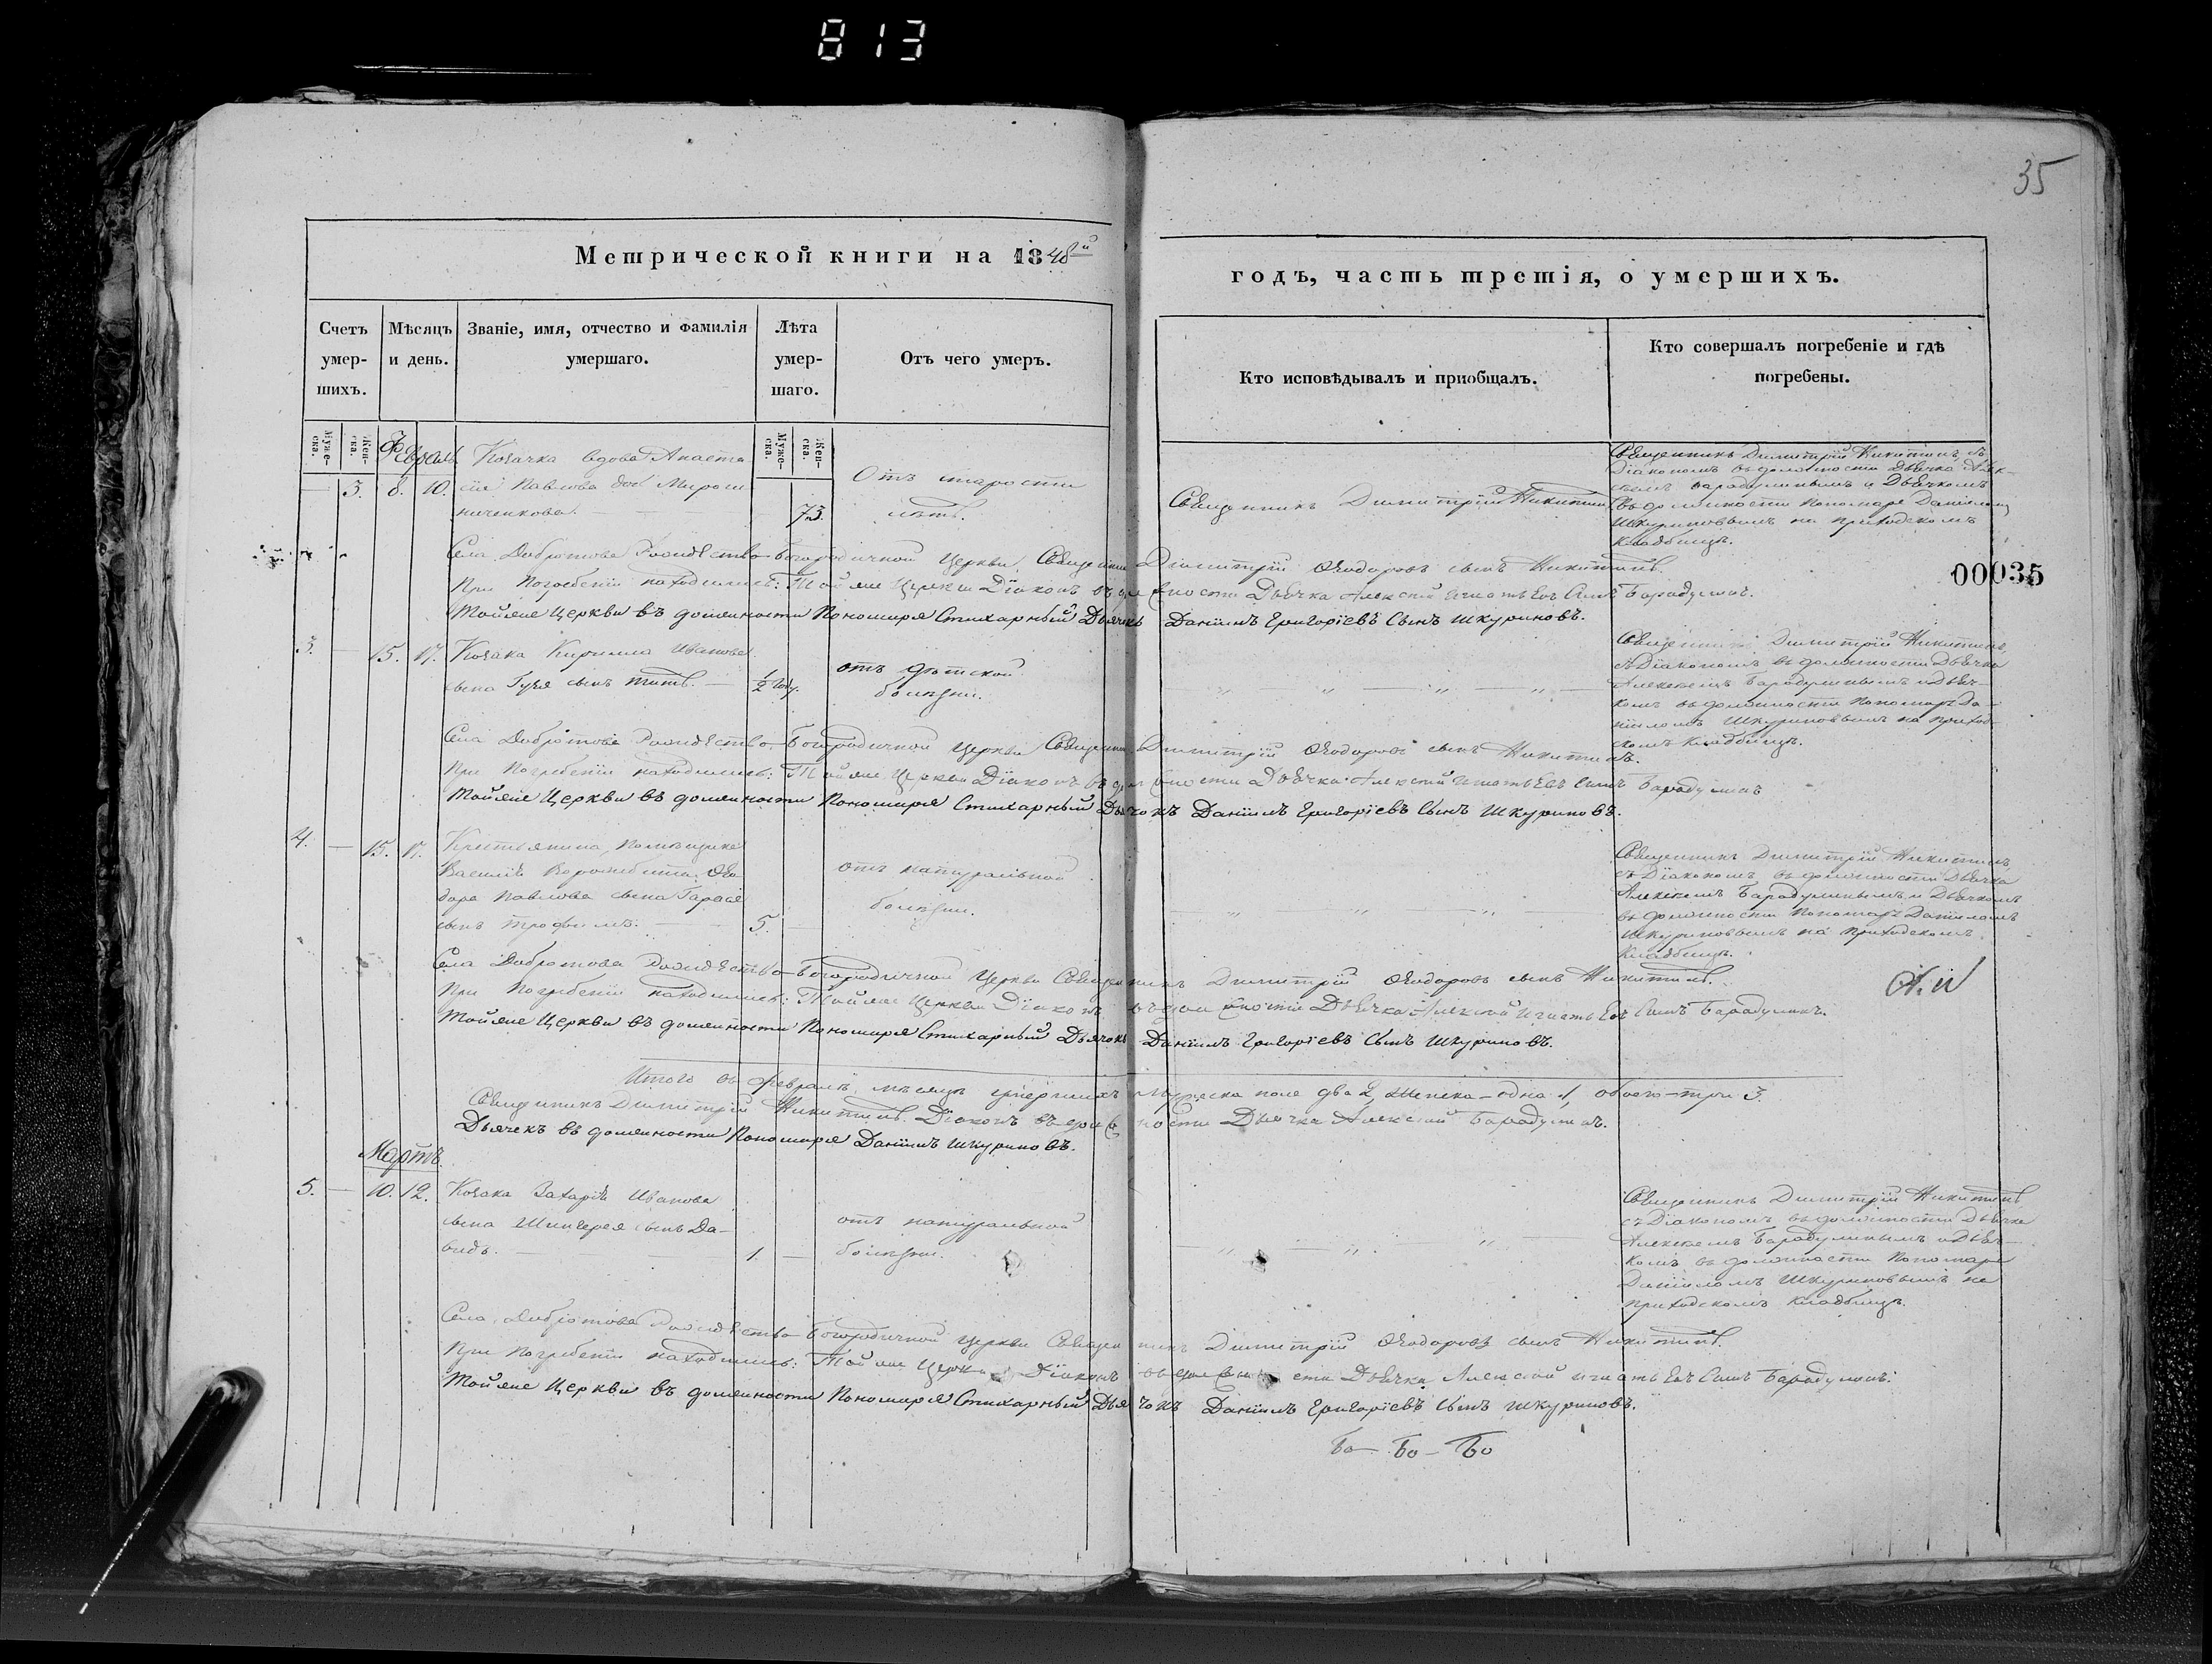 813
35
Метрической книги на 1848й
годъ, часть третія, о умершихъ.
Счетъ умер-шихъ.
Мѣсяцъ и день.
Званіе, имя, отчество и фамилія умершаго.
Лѣта умер-шаго.
Отъ чего умеръ.
Кто исповѣдывалъ и пріобщалъ.
Кто совершалъ погребеніе и гдѣ погребены.
Муже-ска.
Жен-ска.
Мужe-ска.
Жен-ска.
Февраль
— 3. 8. 10.
Козачка вдова Анаста
сія Павлова
ниченкова.
73.
Отъ старости
лѣтъ.
Священникъ Димитрій Никитинъ
Священникъ Димитрій Никитинъ съ
Діакономъ въ должности Дьячка Алек-
сѣемъ Барадулинымъ и Дьячкомъ
въ должности Пономаря Даніиломъ
Шкуриновымъ на приходскомъ
кладбищѣ.
Села Добротова Рождество-Богородичной Церкви Священникъ Димитрій Ѳеодоровъ сынъ Никитинъ.
При погребеніи находились: Той же Церкви Діаконъ въ должности Дьячка Алексій Игнатьевъ Сынъ Барадулинъ.
Той же Церкви въ должности Пономаря Стихарный Дьячекъ Даніилъ Григоріевъ Сынъ Шкуриновъ.
00035
3. — 15. 17.
Козака Кирилла Иванова
сына сынъ Титъ.
1/2 году.
отъ дѣтской
болѣзни.
Священникъ Димитрій Никитинъ,
съ Діакономъ въ должности Дьячка
Алексѣемъ Барадулинымъ и Дьяч-
комъ въ должности Пономаря Да-
ніиломъ Шкуриновымъ на приход-
скомъ кладбищѣ.
Села Добротова Рождество-Богородичной Церкви Священникъ Димитрій Ѳеодоровъ сынъ Никитинъ.
При погребеніи находились: Той же Церкви Діаконъ въ должности Дьячка Алексій Игнатьевъ Сынъ Барадулинъ
Той же Церкви въ должности Пономаря Стихарный Дьячокъ Даніилъ Григоріевъ Сынъ Шкуриновъ.
4. — 15. 17.
Крестьянина Помѣщика
Василія Ѳео
дора Павлова сына
сынъ Трофимъ.
5.
отъ натуральной
болѣзни.
Священникъ Димитрій Никитинъ
съ Діакономъ въ должности Дьячка
Алексѣемъ Барадулинымъ и Дьячкомъ
въ должности Пономаря Даніиломъ
Шкуриновымъ на приходскомъ
кладбищѣ.
Села Добротова Рождество-Богородичной Церкви Священникъ Димитрій Ѳеодоровъ сынъ Никитинъ.
При погребеніи находились: Той же Церкви Діаконъ въ должности Дьячка Алексій Игнатьевъ Сынъ Барадулинъ.
Той же Церкви въ должности Пономаря Стихарный Дьячокъ Даніилъ Григоріевъ Сынъ Шкуриновъ.
Итого въ Февралѣ мѣсяцѣ умершихъ Мужеска пола два 2, Женска — одна 1, обоего — три 3.
Священникъ Димитрій Никитинъ. Діаконъ въ должности Дьячка Алексій Барадулинъ.
Дьячекъ въ должности Пономаря Даніилъ Шкуриновъ.
Мартъ
5. — 10. 12.
Козака Захарія Иванова
сына сынъ Да-
видъ.
1. —
отъ натуральной
болѣзни.
Священникъ Димитрій Никитинъ
съ Діакономъ въ должности Дьячка
Алексѣемъ Барадулинымъ и Дьяч-
комъ въ должности Пономаря
Даніиломъ Шкуриновымъ на
приходскомъ кладбищѣ.
Села Добротова Рождество-Богородичной Церкви Священникъ Димитрій Ѳеодоровъ сынъ Никитинъ.
При погребеніи находились: Той же Церкви Діаконъ въ должности Дьячка Алексій Игнатьевъ Сынъ Барадулинъ.
Той же Церкви въ должности Пономаря Стихарный Дьячокъ Даніилъ Григоріевъ Сынъ Шкуриновъ.
Бо — Бо — Бо